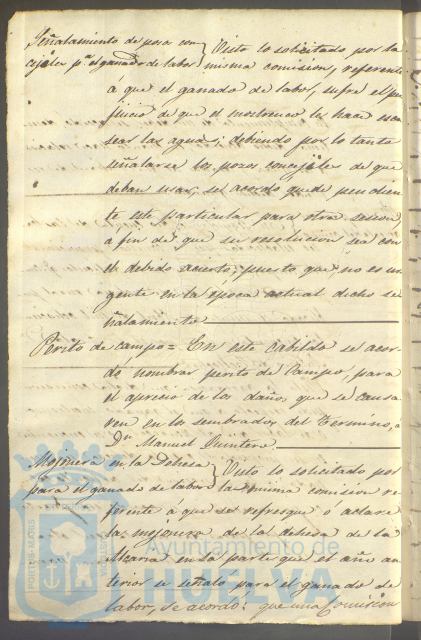 Señalamiento de pozos con- } Visto lo solicitado por la
cejiles pª el ganado de labor } misma comision, referente
á que el ganado de labor, sufre el per
juicio de que el mostrenco le hace esca
sear las aguas, debiendo por lo tanto
señalarse los pozos concejiles de que
deban usar, se acordó quede pendien
te este particular para otra sesion
a fin de que su resolucion sea con
el debido acierto, puesto que no es ur
gente en la época actual dicho se
ñalamiento
Perito de campo = En este cabildo se acor-
dó nombrar perito de Campo, para
el aprecio de los daños que se causa
ren en los sembrados del termino, a
Dn Manuel Quintero
Mojonera en la Dehesa } Visto lo solicitado por
para el ganado de labor } la misma comision re
ferente a que se refresque o aclare
la mojonera de la dehesa de la
Alcaria en la parte que el año an
terior se señaló para el ganado de
labor, se acordó: que una Comision
Ayuntamiento de
HUELVA
PORTUS MARIS